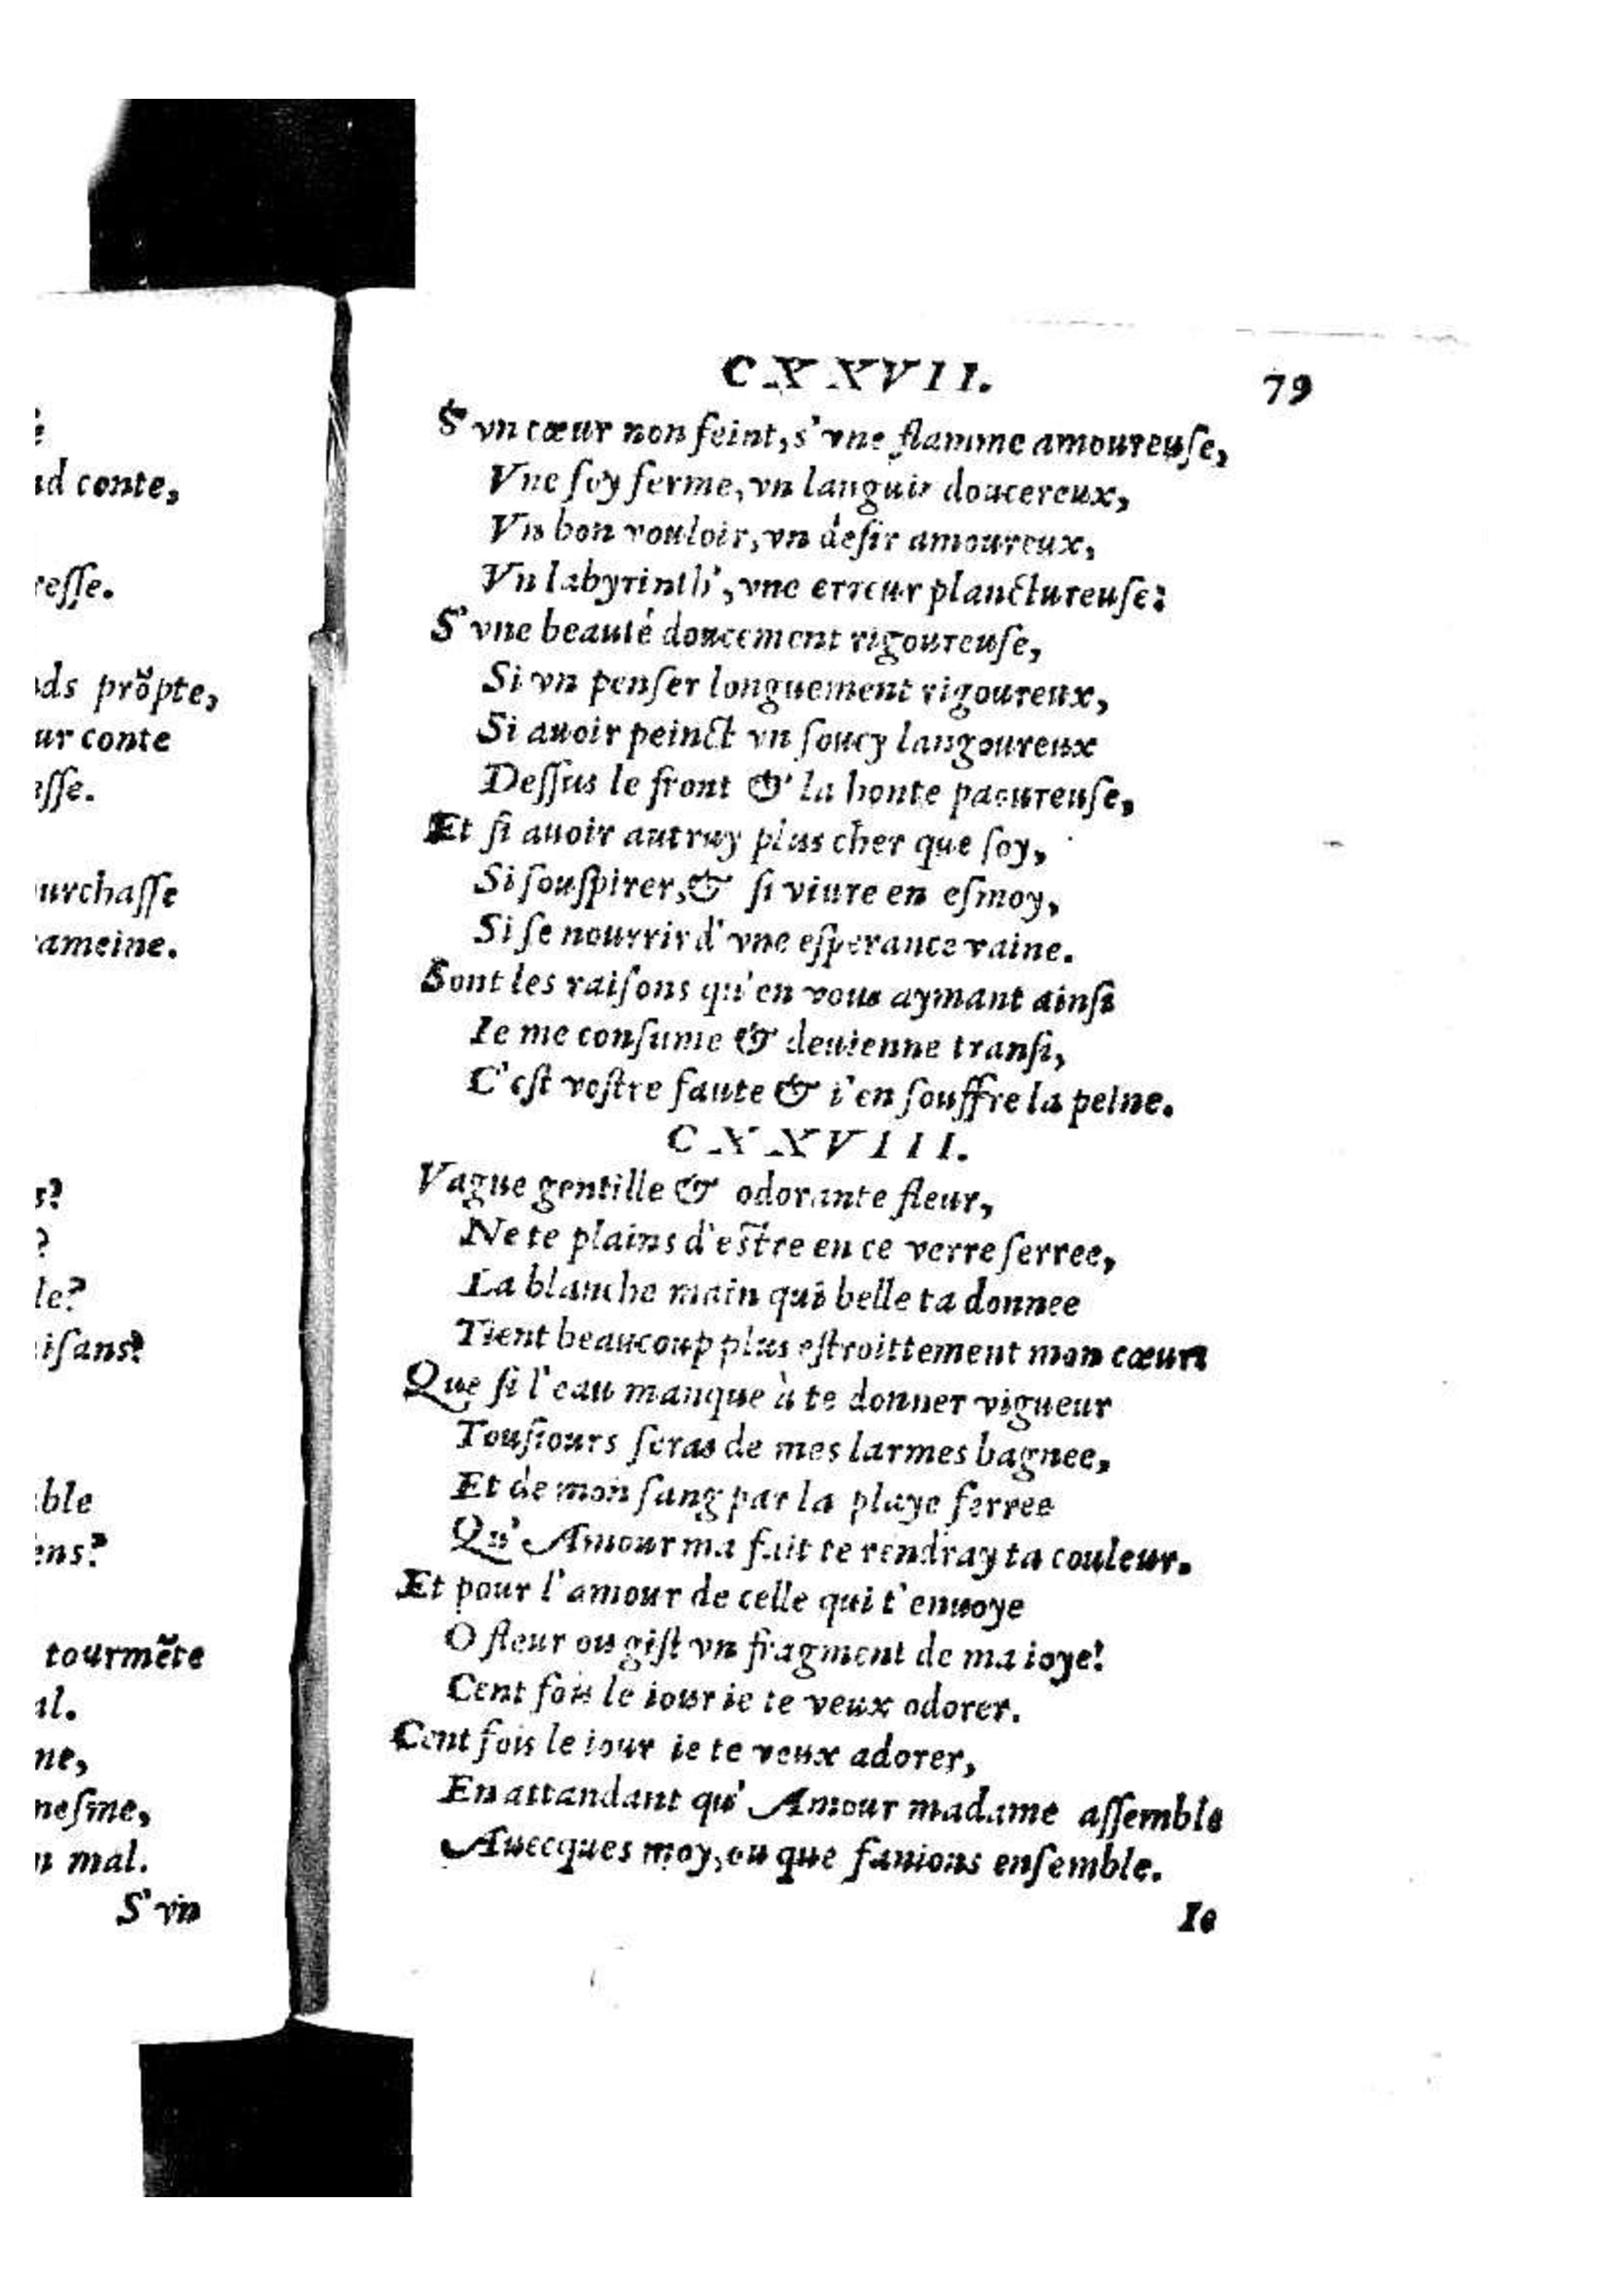 é
nd conte,
resse.
nds prŏpte,
ur conte
esse.
urchasse
rameine.
s?
?
le?
isans?
ble
ens?
tourmĕte
al.
ne,
mesme,
n mal.
S'vn
CXXVII.
79
S'vn cœur non feint, s'vne flamme amoureuſe,
Vne foy ferme, vn languir doucereux,
Vn bon vouloir, vn deſir amoureux,
Vn labyrinth', vne erreur planctureuſe:
S'vne beauté doucement rigoureuſe,
Si vn penſer longuement rigoureux,
Si auoir peinct vn ſoucy langoureux
Deſſus le front & la honte paoureuſe,
Et ſi auoir autruy plus cher que ſoy,
Si ſouſpirer, & ſi viure en eſmoy,
Si ſe nourrir d'vne eſperance vaine.
Sont les raiſons qu'en vous aymant ainſi
Ie me conſume & deuienne tranſi,
C'eſt voſtre faute & i'en ſouffre la peine.
CXXVIII.
Vague gentille & odorante fleur,
Ne te plains d'eſtre en ce verre ſerree,
La blanche main qui belle ta donnee
Tient beaucoup plus eſtroittement mon cœur:
Que ſi l'eau manque à te donner vigueur
Touſiours ſeras de mes larmes bagnee,
Et de mon ſang par la playe ferree
Qu'Amour ma fait te rendray ta couleur.
Et pour l'amour de celle qui t'enuoye
O fleur ou giſt vn fragment de ma ioye!
Cent fois le iour ie te veux odorer.
Cent fois le iour ie te veux adorer,
En attandant qu'Amour madame aſſemble
Auecques moy, ou que fanions enſemble.
Ie